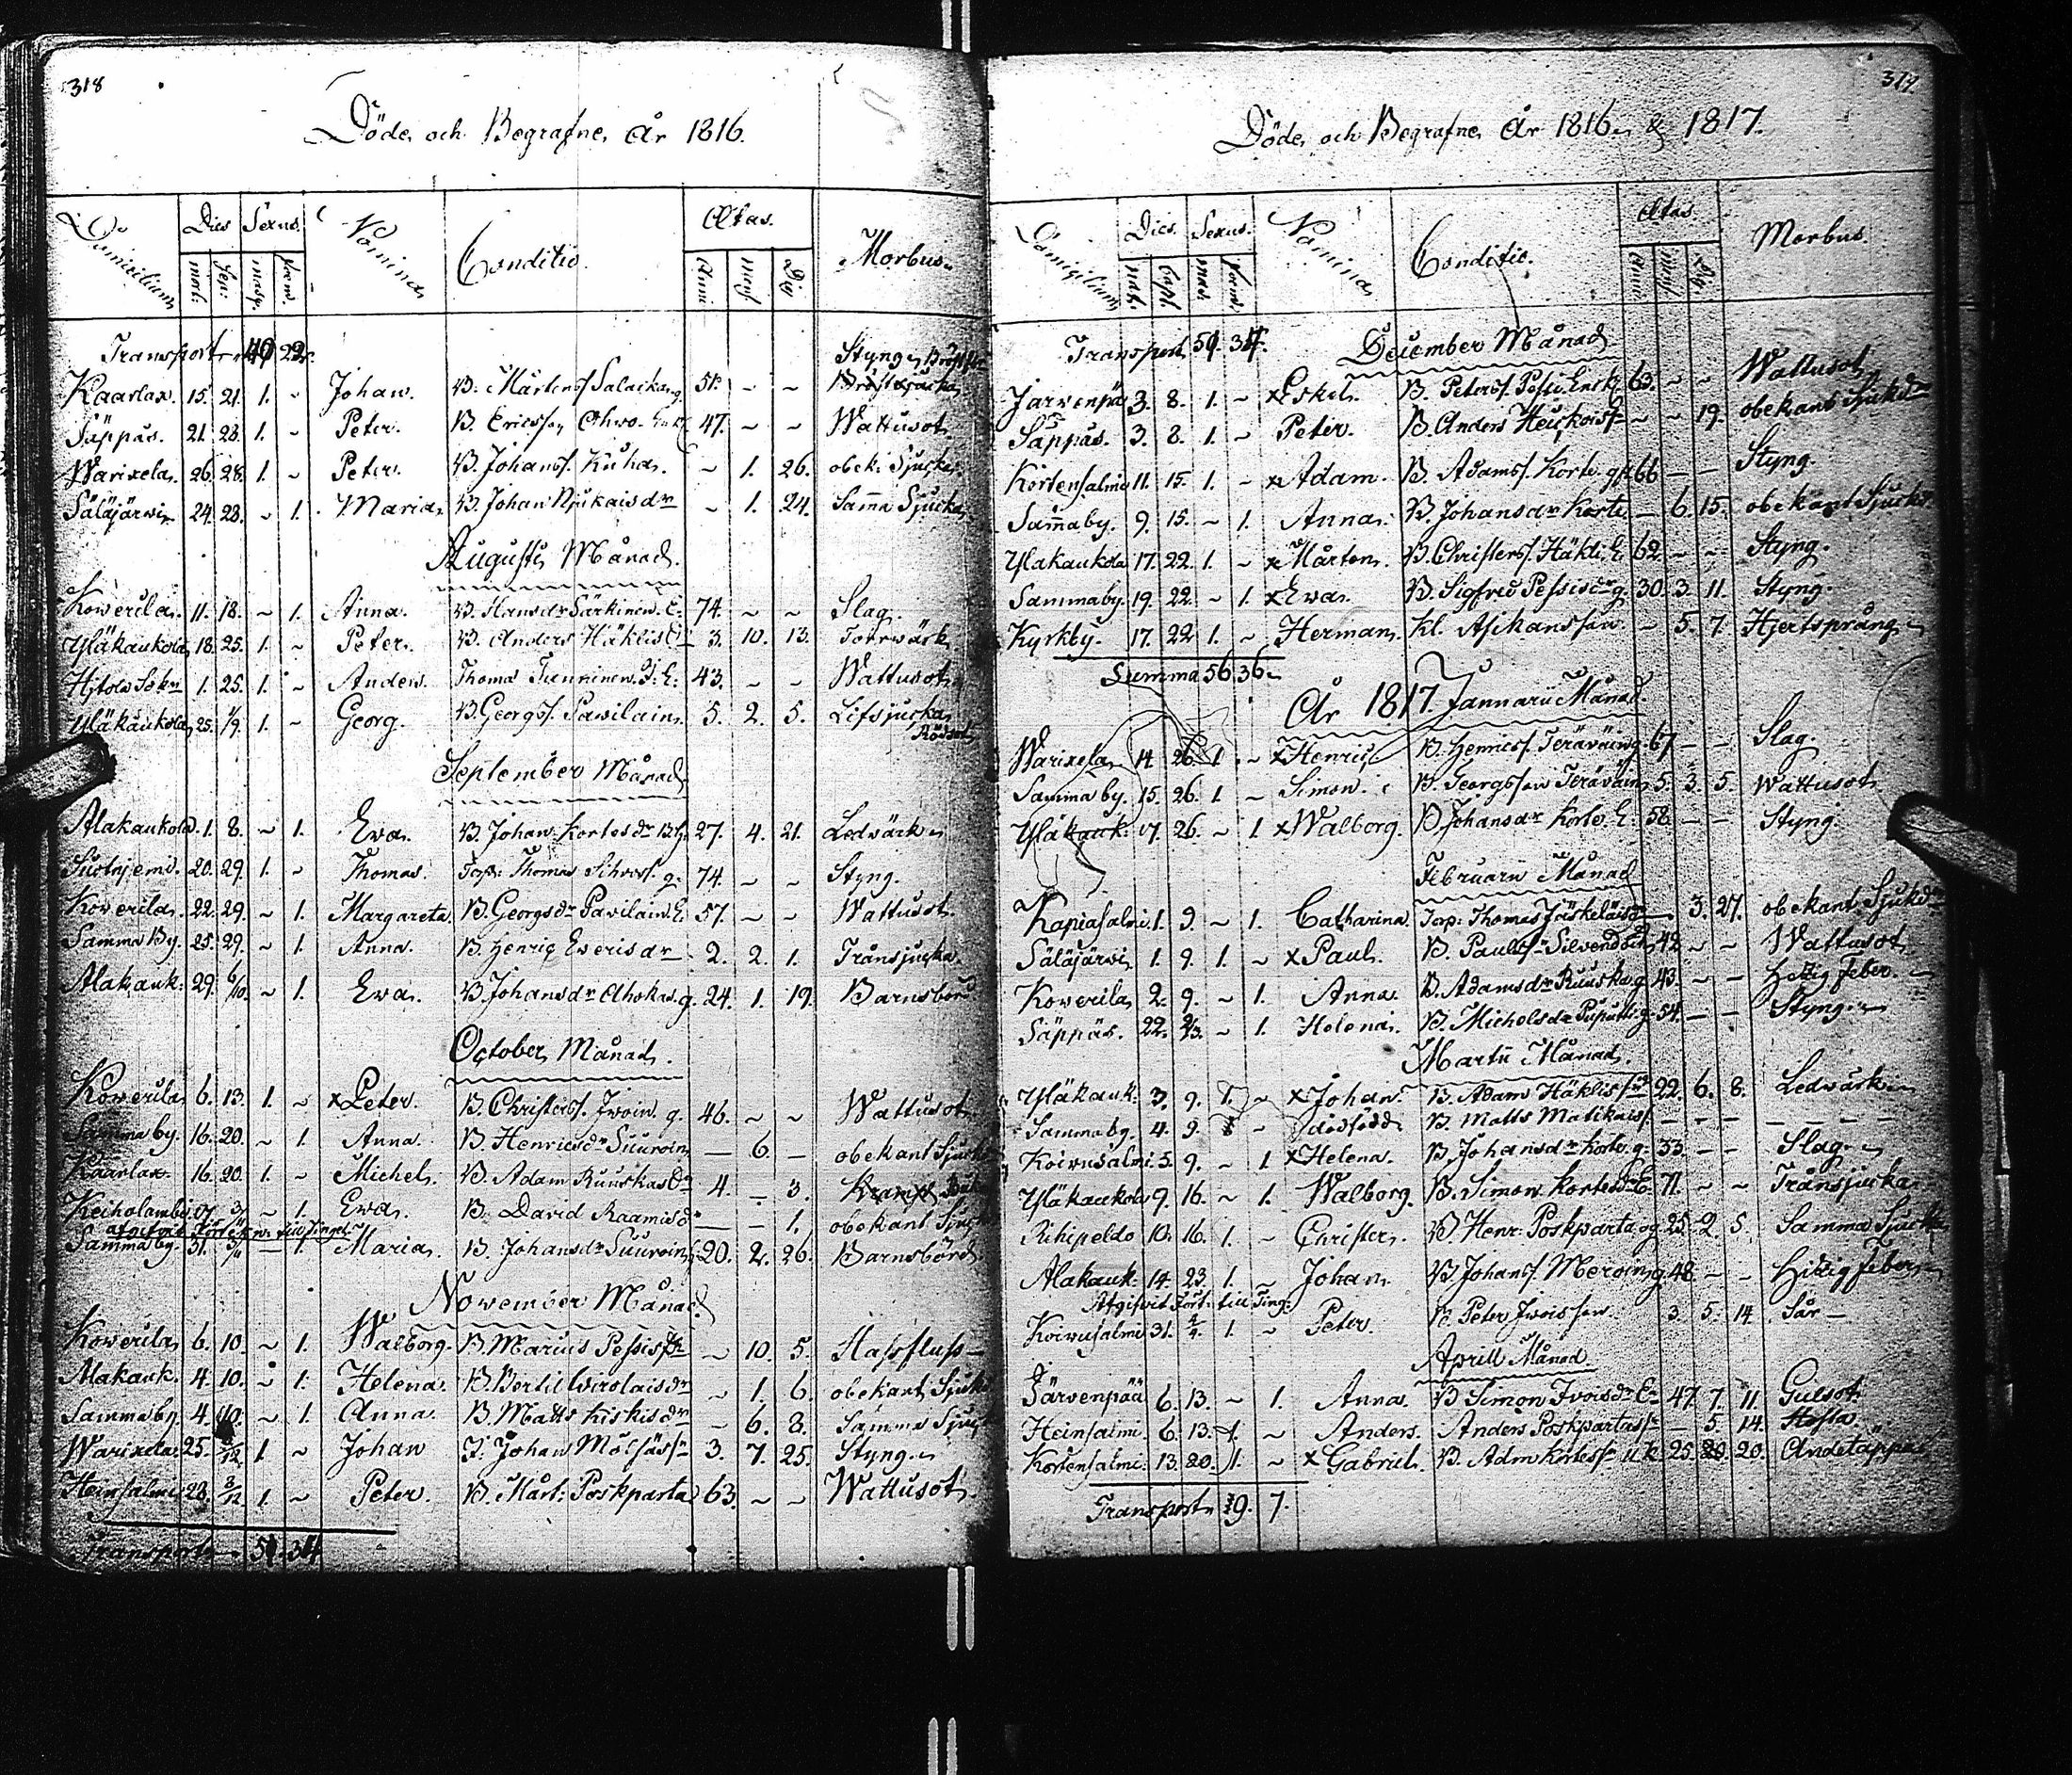 318
Döde och Begrafne år 1816.
Domicilium Dies Sexus. Nomina Conditio. Ætas. Morbus.
mort: sep: masq. fœm. Anni mens Dies
Transport 49 22. Styng
Kaarlax. 15. 21. 1. ~ Johan. B: Mårtenss. Salaika g. 51. ~ ~ Bröstsjucka
Säppäs. 21. 28. 1. ~ Peter. B. Ericss. Ohvo. Enk. 47. ~ ~ Wattusot.
Warixela. 26. 28. 1. ~ Peter. B. Johanss. Kuha. ~ 1. 26. obek: Sjucka.
Säläjärwi. 24. 28. ~ 1. Maria. B. Johan Njukais dr ~ 1. 24. Samma Sjucka
Augusti Månad.
Kowerila. 11. 18. ~ 1. Anna. B. Hansdr Särkinen. E: 74. ~ ~ Slag.
Yläkaukola 18. 25. 1. ~ Peter. B. Anders Häklis 3. 10. 13. Torrwärk
Hitola Sokn 1. 25. 1. ~ Anders. Thomas 43. ~ ~ Wattusot
Yläkaukola 25. 1/9. 1. ~ Georg. B. Georgs. Pawilain. 5. 2. 5. Lifsjucka
Rödsot
September Månad
Alakaukola. 1. 8. ~ 1. Ewa. B. Johan Kortes dr 27. 4. 21. Ledwärk
Suotniemi. 20. 29. 1. ~ Thomas. Torp: Thomas g. 74. ~ ~ Styng.
Kowerila. 22. 29. ~ 1. Margareta. B. Georgs dr Pavilain. E. 57. ~ ~ Wattusot.
Samma By. 25. 29. ~ 1. Anna. B. Henric Eweris dr 2. 2. 1. Trånsjucka
Alakauk. 29. 6/10. ~ 1. Ewa. B. Johans dr Ahokas. g. 24. 1. 19. Barnsbörd
October Månad.
Kowerila 6. 13. 1. ~ x Peter. B. Christers. Iwoin. g. 46. ~ ~ Wattusot
Samma by. 16. 20. ~ 1. Anna. B. Henrics dr Suuroin — 6. — obekant Sjuck
Kaarlax. 16. 20. 1. ~ Michel. B. Adam Ruuskas 4. — 3.
Keiholambi. 3/ ~ 1. Ewa. B. David Raamis d — — 1. obekant Sjuck
Samma by. 31. 3/11 — 1. Maria. B. Johans dr Suuroin 20. 2. 26. Barnsbörd.
November Månad
Kowerila 6. 10. ~ 1. Walborg. B. Marius Pessis ~ 10. 5. Halsfluss
Alakauk. 4. 10. ~ 1. Helena. B. Bertil Wirolais dr ~ 1. 6. obekant Sjuck
Samma by. 4. 10. ~ 1. Anna. B. Matts Kiskis dr ~ 6. 8. Samma Sjuck
Warixela. 25. /12 1 ~ Johan J. Johan Mölsäs 3. 7. 25. Styng.
Heinsalmi 28. 8/12 1. ~ Peter. B. Mårt: Poskparta 63. ~ ~ Wattusot.
Transport 51. 34
319
Döde och Begrafne År 1816. & 1817.
Domicilium Dies. Sexus. Nomina Conditio. Ætas. Morbus.
nat. sept. mas. fœm. Anni mens Dies
Transport 51. 34. December Månad
Järwenpä 3. 8. 1. ~ x Eskel. B. Peterss. Pessi Enck. 63. ~ ~ Wattusot
Säppäs. 3. 8. 1. ~ Peter. B. Anders Heickois ~ ~ 19. obekant Sjukd
Kortensalmi 11. 15. 1. ~ x Adam. B. Adamss. Korte. 66 — — Styng.
Samma by. 9. 15. ~ 1. Anna. B. Johans dr Korte — 6. 15. obekant Sjukd
Ylakaukola 17. 22. 1. ~ x Mårten. B. Christers. Häkli. E. 62. ~ ~ Styng.
Samma by. 19. 22. ~ 1. x Ewa. B. Sigfred Pessis dr g. 30. 3. 11. Styng.
Kyrkby. 17. 22. 1. ~ Herman. Kl. — 5. 7. Hjertsprång
Summa 56 36
År 1817. Januarii Månad
Warixela 14 26. 1. ~ x Henric B. Henrics. Teräväin g. 67 — — Slag.
Samma by. 15. 26. 1. ~ Simon. B. Georgsson Teräväin 5. 3. 5. Wattusot
Yläkauk: 17. 26. ~ 1. x Walborg. B. Johans dr Korte. E. 58. — — Styng
Februarii Månad
Kapiasalmi. 1. 9. ~ 1. Catharina. Torp: Thomas Jäskeläis 3. 27. obekant Sjukd
Säläjärwi 1. 9. 1. ~ x Paul. B. Paulss. Silvend 42 ~ ~ Wattusot
Kowerila 2. 9. ~ 1. Anna. B. Adams dr Ruuska. g. 43. — — Hettig Feber.
Säppäs. 22. 2/3. ~ 1. Helena. B. Michels dr Puputti g. 54. — — Styng.
Martii Månad.
Yläkauk: 3. 9. 1. ~ x Johan. B. Adam Häklis 22. 6. 8. Ledwärk
Samma by. 4. 9. ~ dödfödd B. Matts Matikais — — — —
Koiwusalmi 5. 9. ~ 1. x Helena. B. Johans dr Korte. g. 33. — — Slag.
Yläkaukola 9. 16. ~ 1. Walborg. B. Simon Kortes dr E. 71. ~ ~ Trånsjucka
Rihipeldo 10. 16. 1. ~ Christer. B. Henr. Poskparta og. 25 2 5. Samma Sjucka
Alakauk. 14. 23. 1. ~ Johan B. Johanss. Meroin g. 48. — — Hidzig feber
Afgifvit Fört. till Ting:
Koiwusalmi 31. 4/4. 1. ~ Peter. B. Peter Iwoisson. 3. 5. 14. Sår —
Aprill Månad.
Järvenpää 6. 13. ~ 1. Anna. B. Simon Ivois dr E. 47. 7. 11. Gulsot.
Heinsalmi. 6. 13. 1. ~ Anders. Anders Poskpartas — 5. 14. Hosta
Kortensalmi. 13. 20. 1. ~ x Gabriel. B. Adm Kortes 25. 20. Andetäppa
Transport 19. 7.